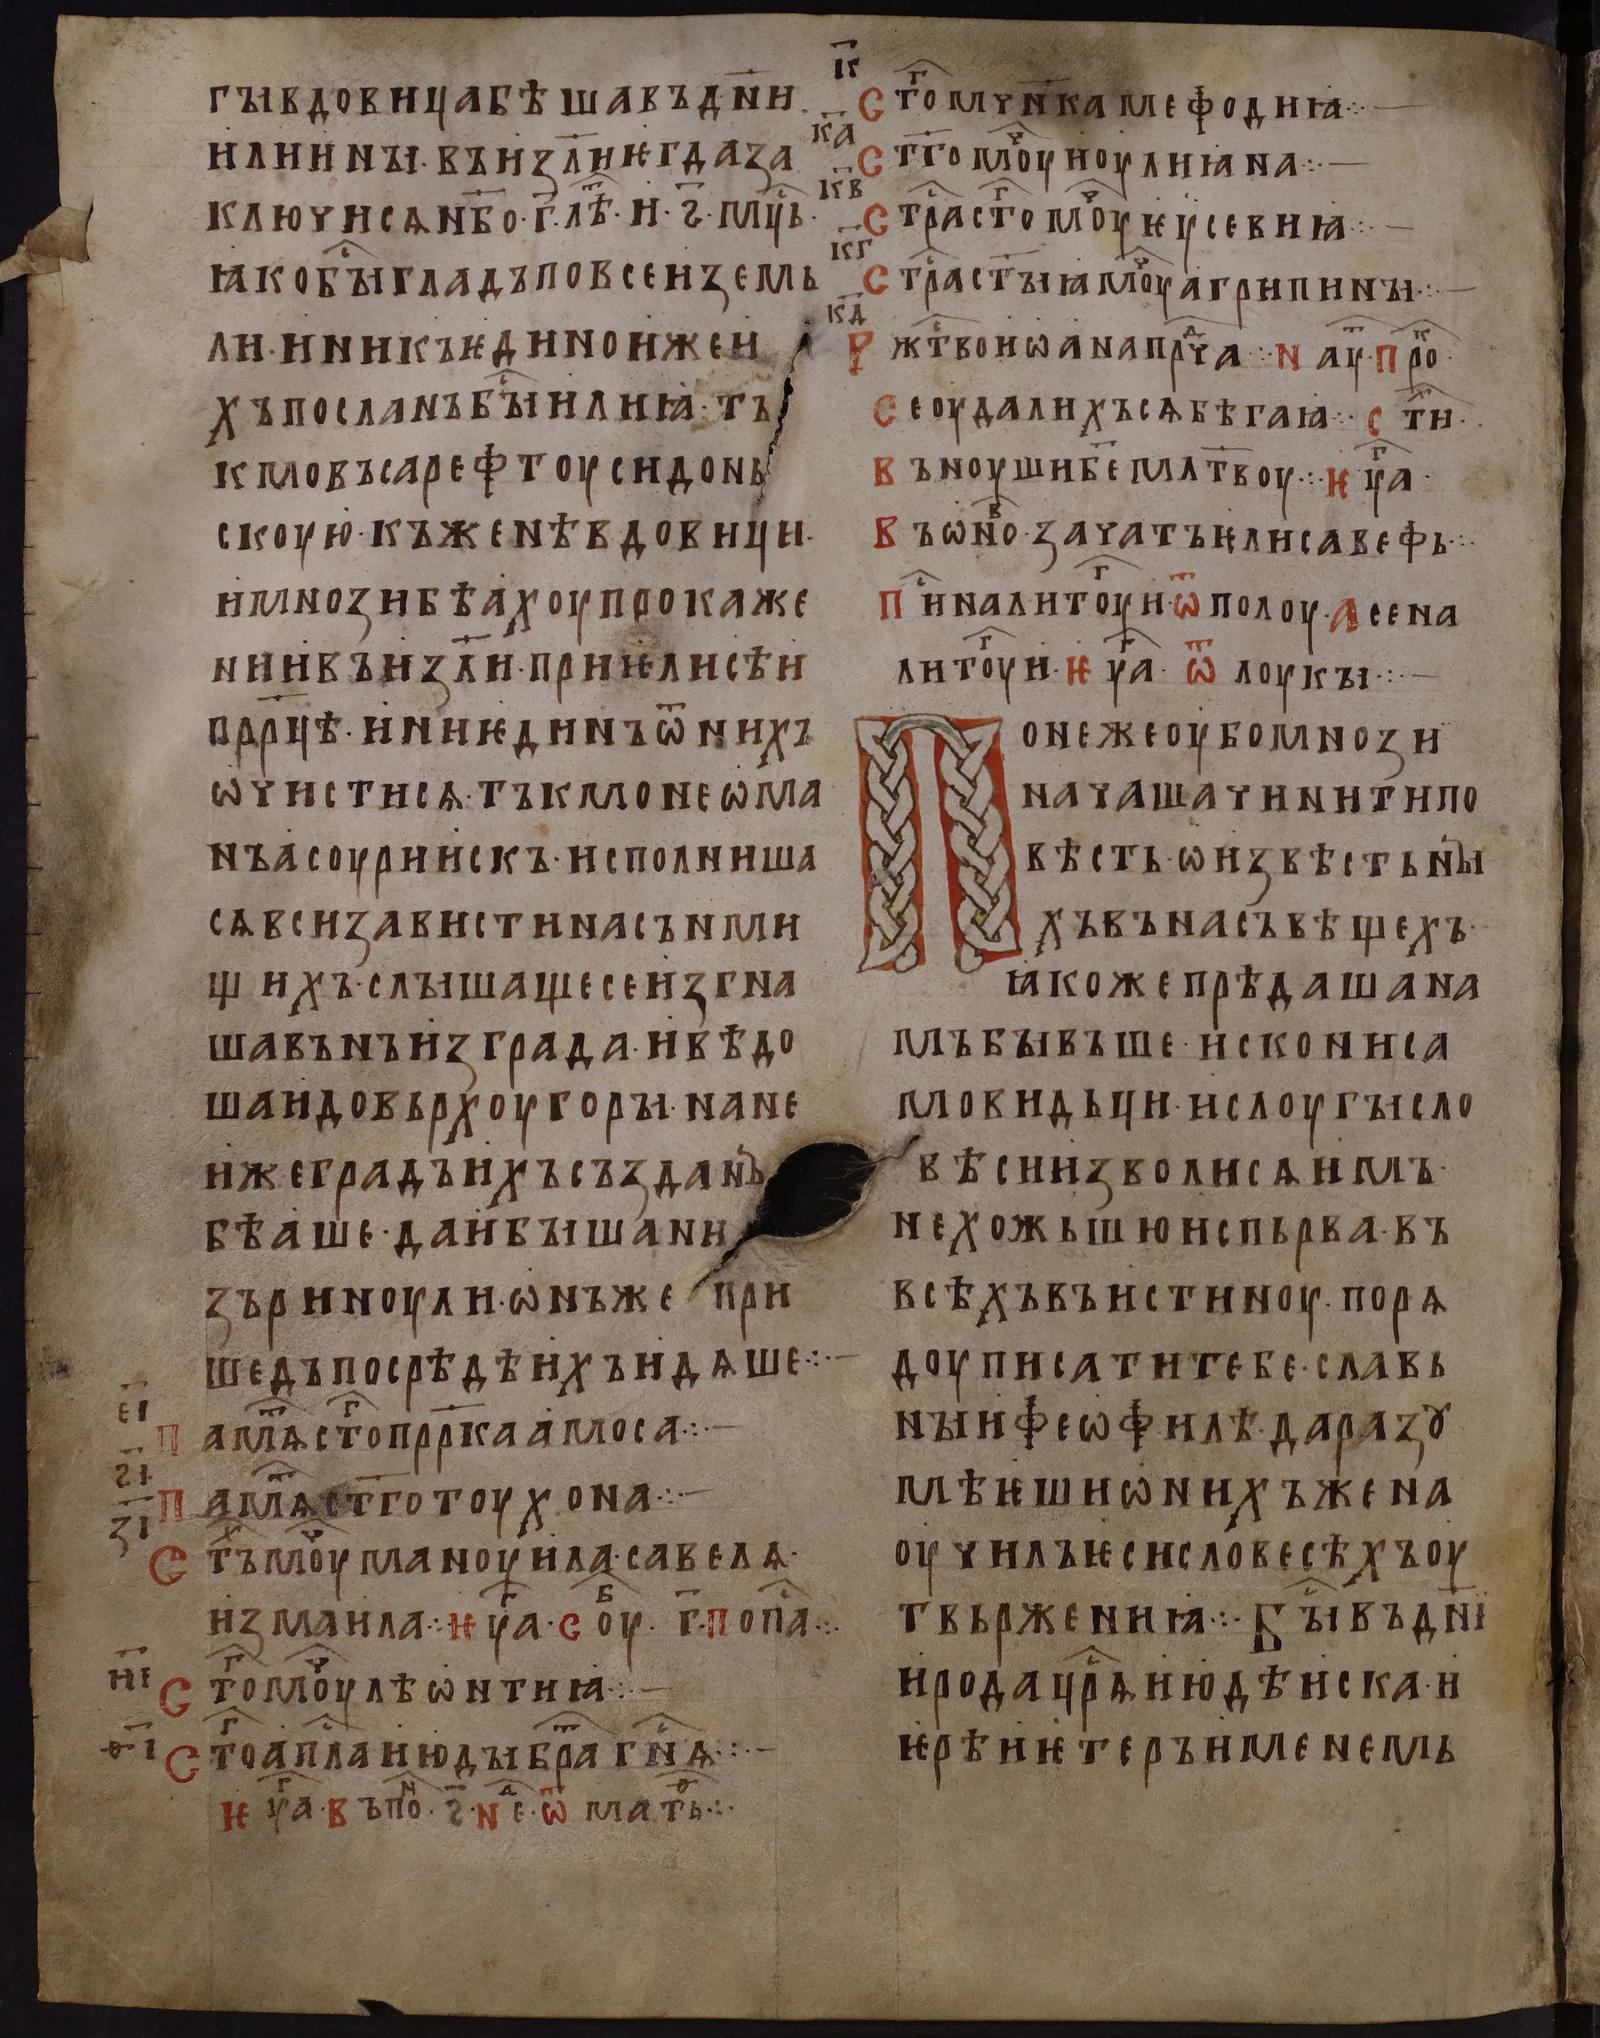 гꙑвдовицабѣшавъдн҃и
илиинꙑ·въизл҃иѥгдаза
ключисѧнб҃о·г҃·лѣ·и·ѕ҃·мц҃ь·
ꙗкобꙑгладъповсеиземь
ли·иникъѥдинойжеи
хъпосланъбꙑилиꙗ·тъ
кмовъсарефтоусидонь
скоую·къженѣвдовици·
имнозибѣахоупрокаже
ниивъизл҃и·приѥлисѣи
прр҃цѣ·иниѥдинъѿнихъ
ѡчистисѧ·тъкмонеѡма
нъасоуриискъ·исполниша
сѧвсизавистинасънми
щихъ·слꙑшащесеизгна
шавънъизграда·ивѣдо
шаидовьрхоугорꙑ·нане
ижеградъихъсъзданъ
бѣаше·даибꙑшани
зъриноули·ѡнъже при
шедъпосрѣдѣихъидѧше·:·
е҃і
Памѧстгопрр҃каамоса·:·
ѕ҃і
Памѧст҃готоухона·:·
з҃і
Стъмчоуманоуила·савелѧ·
измаила·:·ѥуⷢ҇а·соу·г҃·попⷭ҇а·:·
и҃і
Стгомчоулѣѡнтиꙗ·:·
ѳ҃і
Стгоапⷭ҇лаиюдꙑбратагнѧ·:·
ѥуⷢ҇а·въпоⷩ҇·ѕ҃·неⷣ·ѿмать·:·
к҃
Стгомчн҃камефодиꙗ·:·
к҃а
Ст҃гомчоуиоулиꙗна·:·
к҃в
Стрⷭ҇астгомчоуѥусевиꙗ·:·
к҃г
Стрⷭ҇аст҃ꙑꙗмчоуагрипинꙑ·:·
к҃д
Ржтⷭ҇воиѡанапрⷣча·:·науⷮ·проⷦ҇·
Сеоудалихъсѧбѣгаꙗ·:·стиⷯ·
Въноушиб҃емлт҃воу·:·ѥуⷢ҇а·
Въѡноⷡ҇·зачатъѥлисавефь·:·
Пⷭ҇иналитоуⷢ҇и·ѿполоу·асена
литоуⷢ҇и·ѥуⷢ҇а·ѿлоукꙑ·:·
Понежеоубомнози
начашачинитипо
вѣсть·ѡизвѣстьнꙑ
хъвънасъвѣщехъ·
ꙗкожепрѣдашана
мъбꙑвъше·исконниса
мовидьци·ислоугꙑсло
вѣсиизволисѧимъ·
нехожьшюиспьрва·въ
всѣхъвъистиноу·порѧ
доуписатитебе·славь
нꙑифеѡфилѣ·даразꙋ
мѣѥшиѡнихъжена
оучилъѥсисловесѣхъоу
твьржениꙗ·:·Бꙑⷭ҇въдн҃і
иродацрⷭ҇ѧиюдѣиска·и
ѥрѣиѥтеръименемь